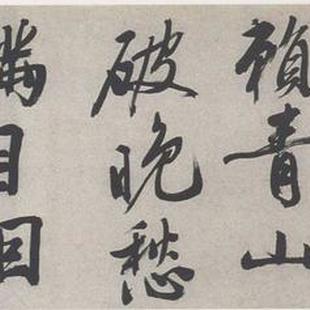 賴青山
破晚愁
滿目回